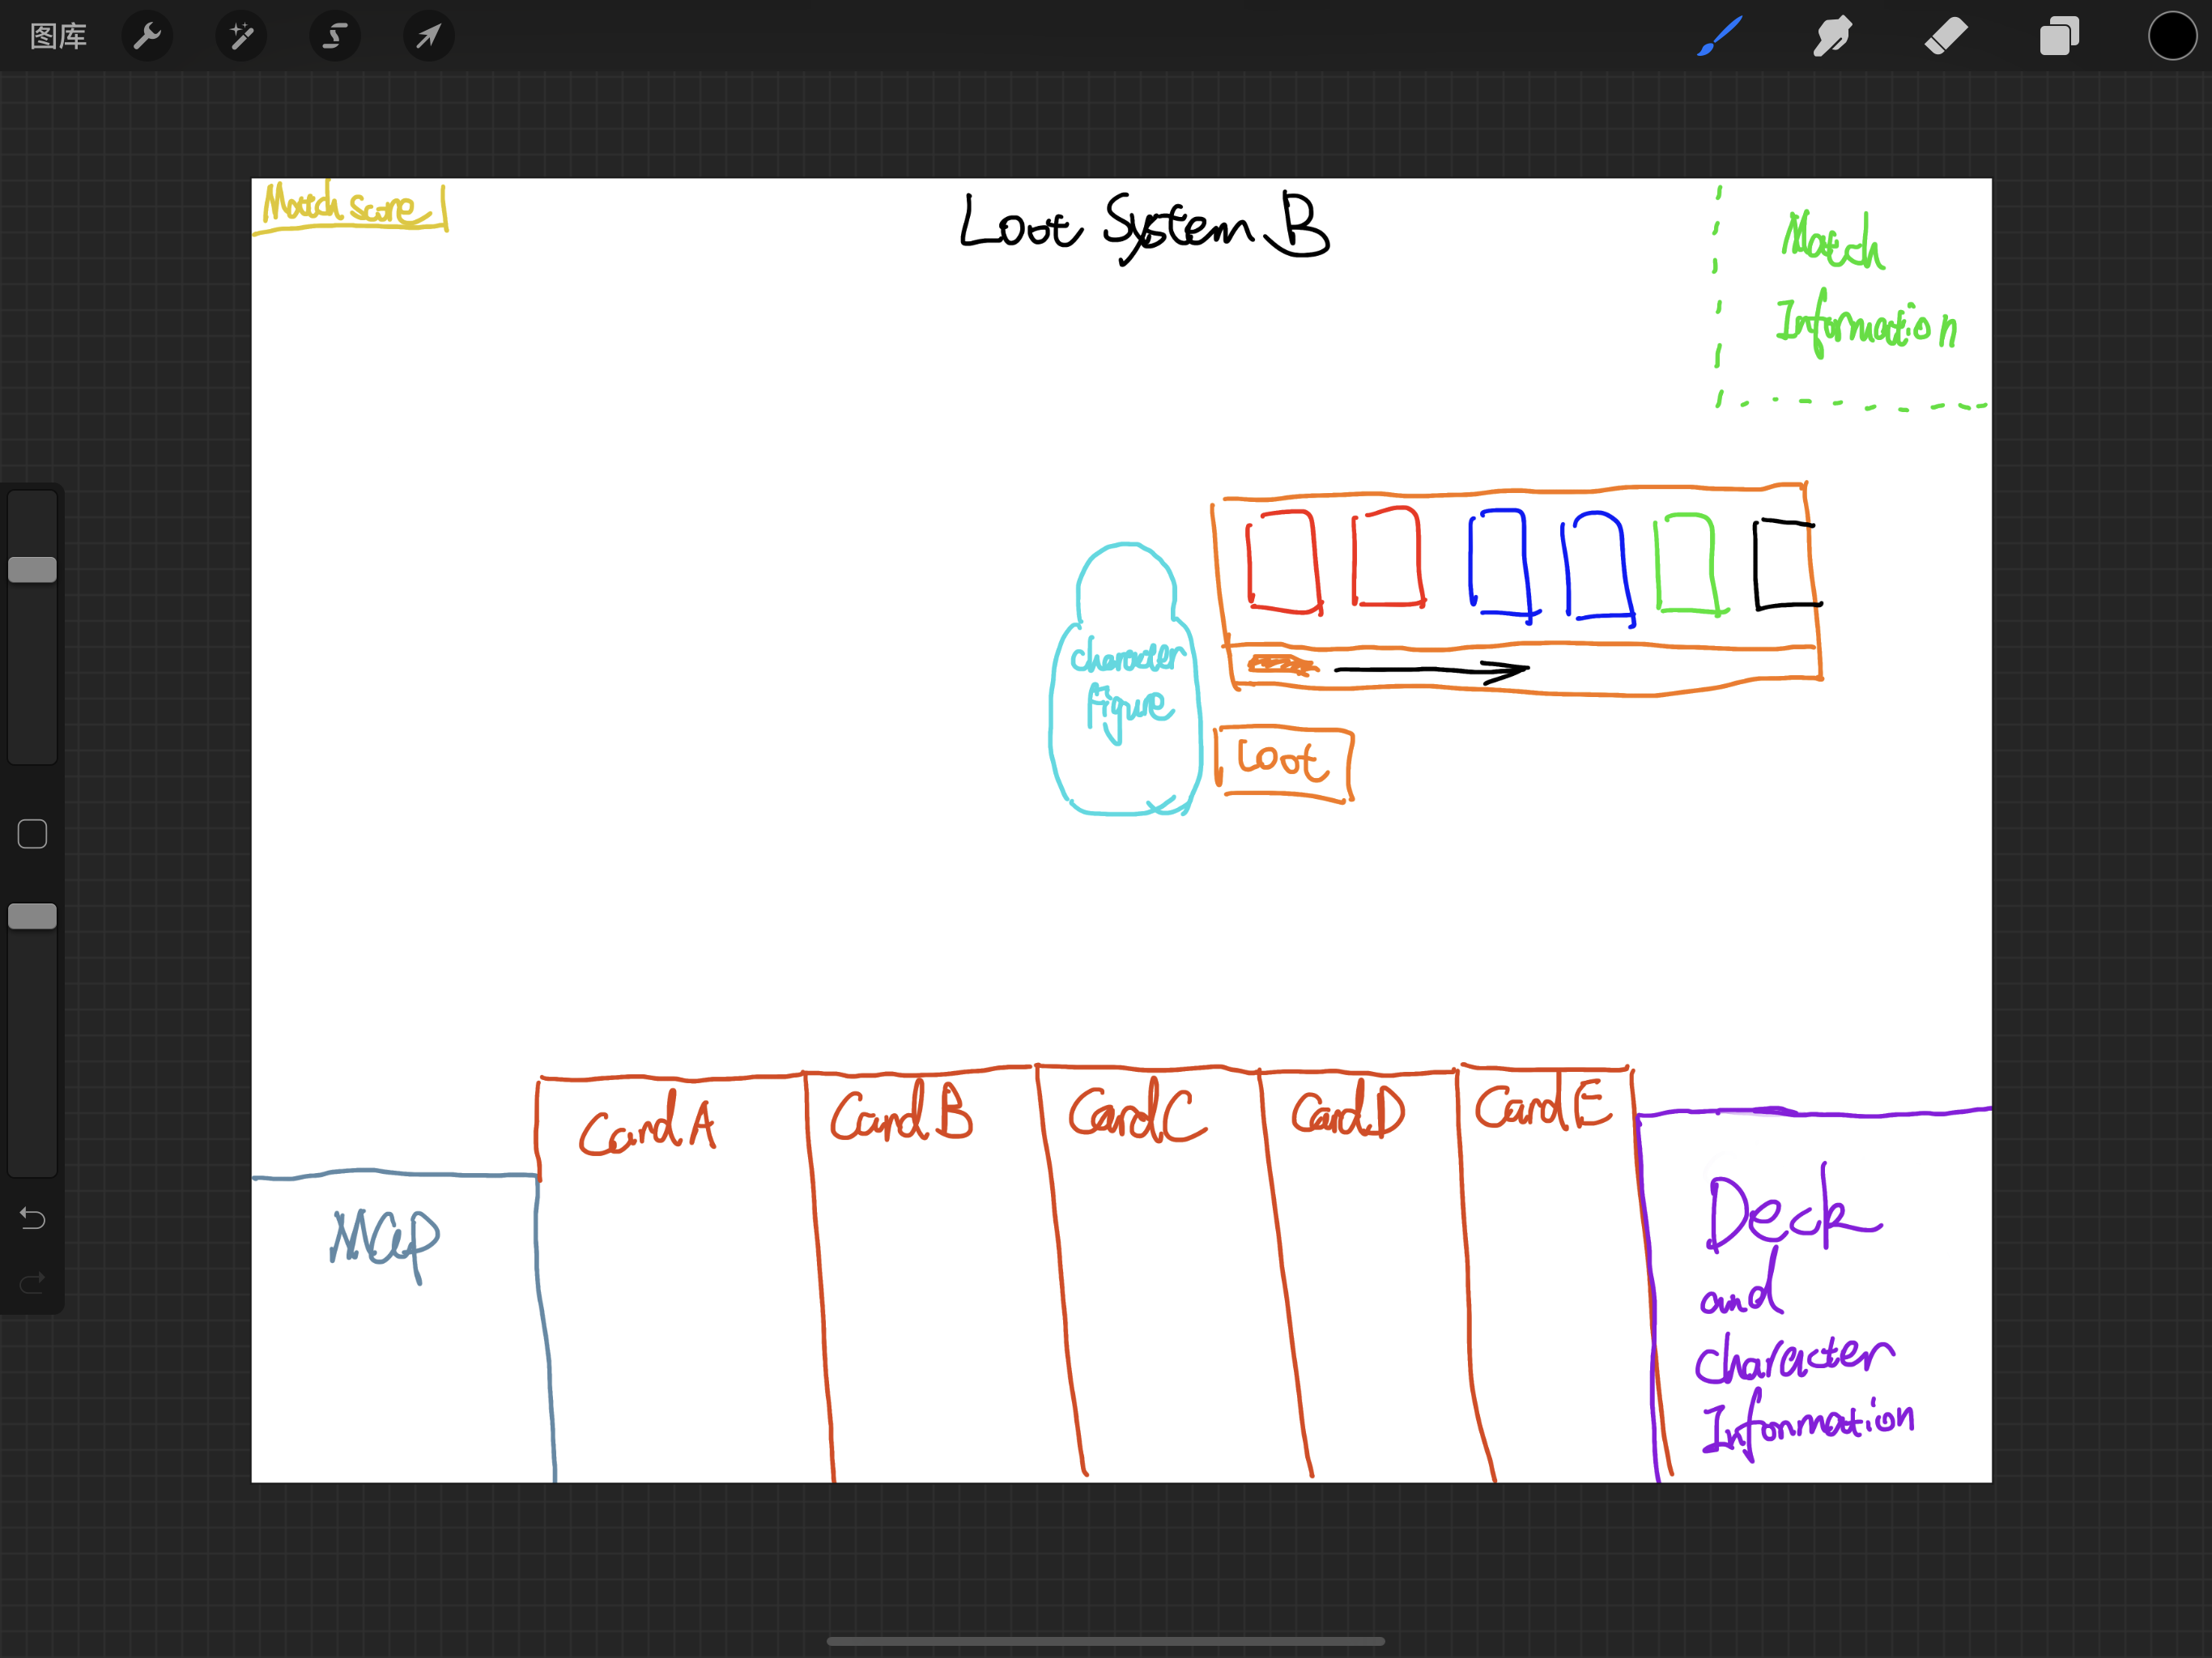 图库
Match score
Loot System B
Match
Information
Character
Figure
Loot
Card A
Card B
Card C
Card D
Card E
Map
Deck
and
Character
Information